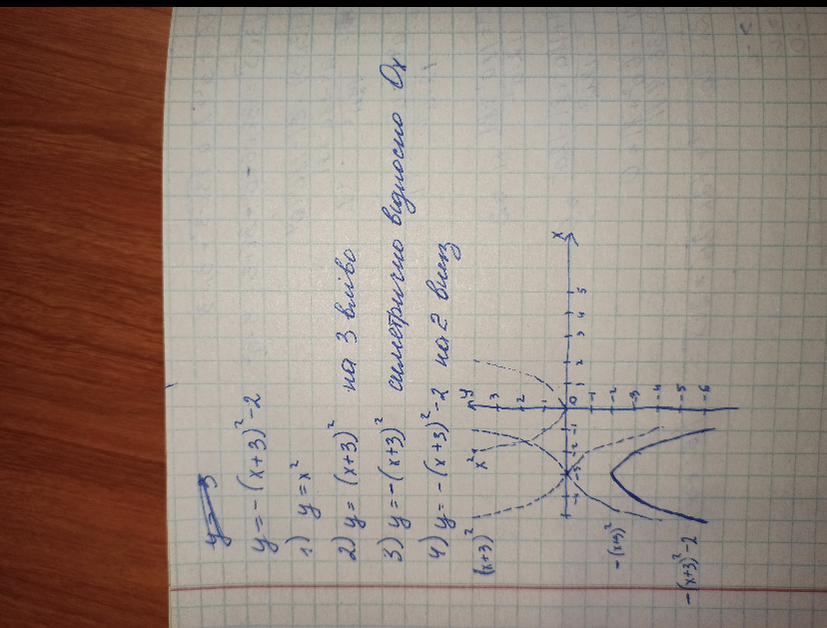 y = -(x+3)²-2
1) y = x²
2) y = (x+3)² на 3 вліво
3) y = -(x+3)² симетрично відносно Ox
4) y = -(x+3)²-2 на 2 вниз
(x+3)² x² y
3
2
1
-4 -3 -2 -1 0 1 2 3 4 5 x
-1
-(x+3)² -2
-3
-4
-(x+3)²-2 -5
-6